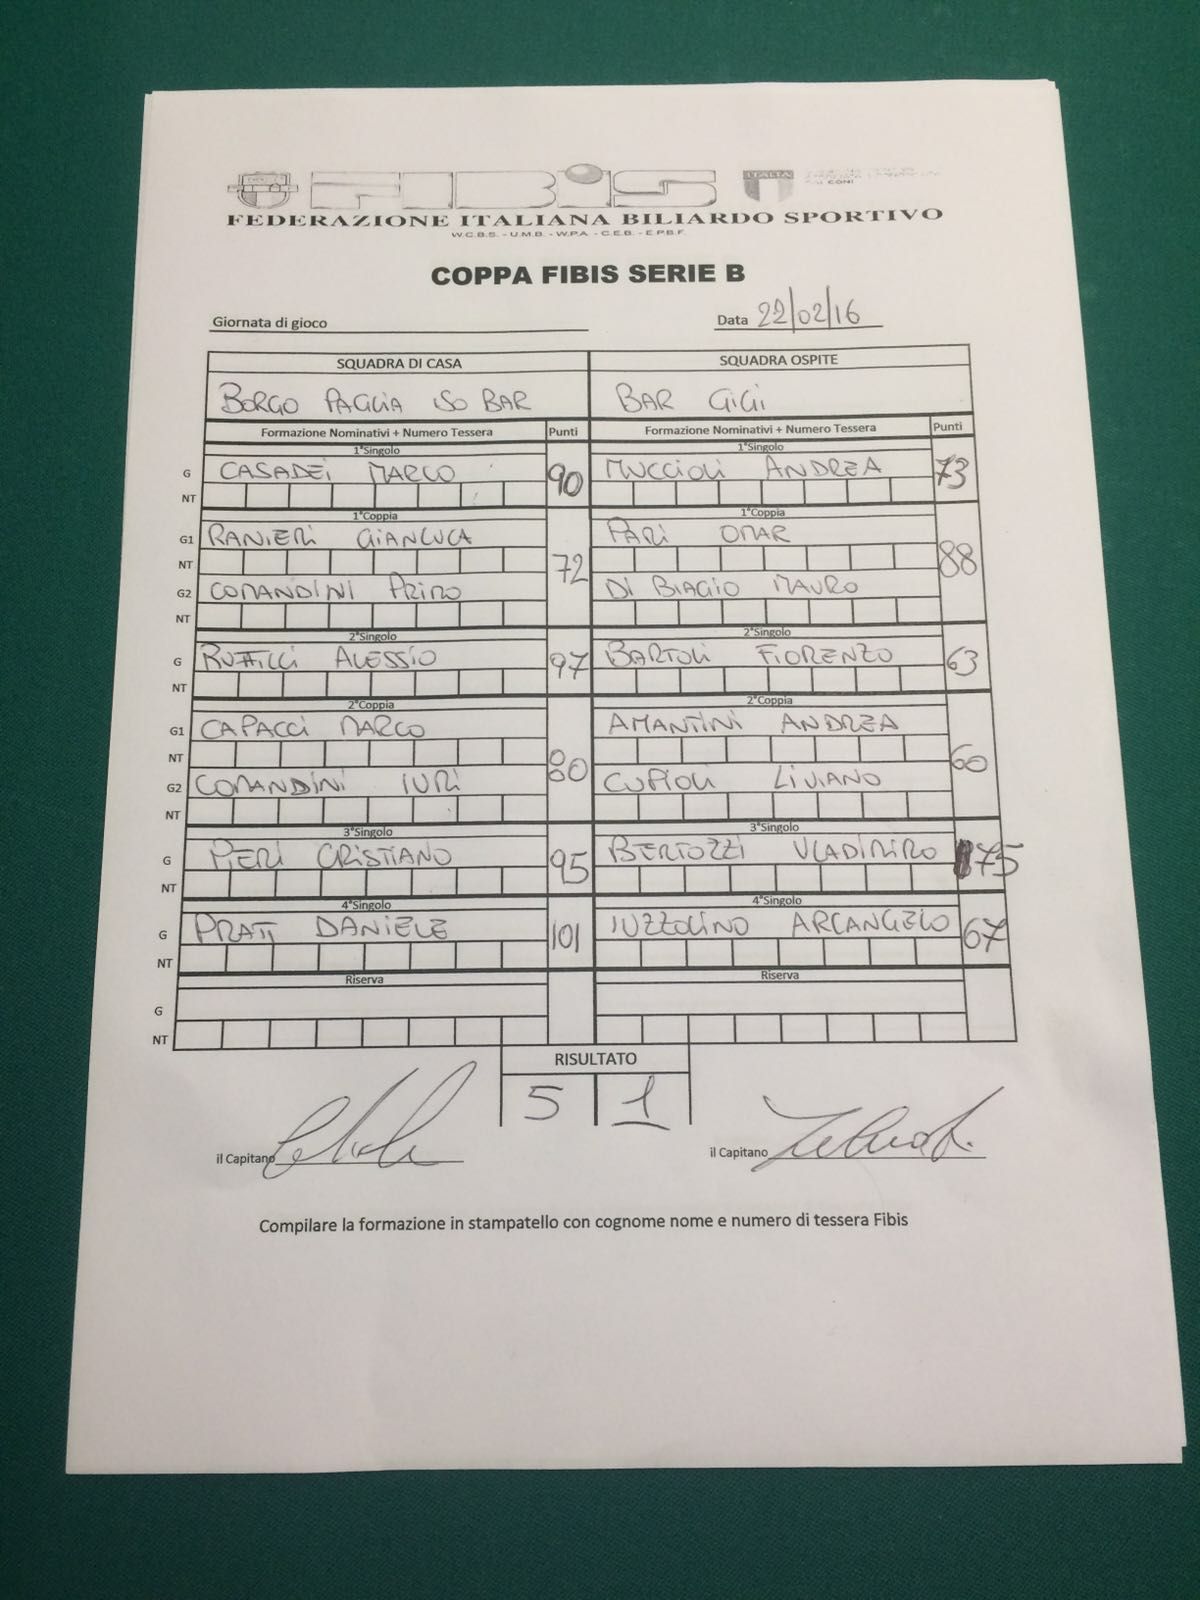 FIBiS
ITALIA
CONI
FEDERAZIONE ITALIANA BILIARDO SPORTIVO
W.C.B.S. - U.M.B. - W.P.A. - C.E.B. - E.P.B.F.
COPPA FIBIS SERIE B
Giornata di gioco Data 22/02/16
SQUADRA DI CASA SQUADRA OSPITE
BORGO PAGLIA ISO BAR BAR GIGI
Formazione Nominativi + Numero Tessera Punti Formazione Nominativi + Numero Tessera Punti
1°Singolo 1°Singolo
G CASADEI MARCO 90 MUCCIOLI ANDREA 73
NT
1°Coppia 1°Coppia
G1 RANIERI GIANLUCA PARI OMAR
NT 72 88
G2 COMANDINI PRIMO DI BIAGIO MAURO
NT
2°Singolo 2°Singolo
G RUFFILLI ALESSIO 97 BARTOLI FIORENZO 63
NT
2°Coppia 2°Coppia
G1 CAPACCI MARCO AMANTINI ANDREA
NT 80 60
G2 COMANDINI IURI CUPIOLI LIVIANO
NT
3°Singolo 3°Singolo
G PIERI CRISTIANO 95 BERTOZZI VLADIMIRO 75
NT
4°Singolo 4°Singolo
G PRATI DANIELE 101 IUZZOLINO ARCANGELO 67
NT
Riserva Riserva
G
NT
RISULTATO
5 1
il Capitano il Capitano
Compilare la formazione in stampatello con cognome nome e numero di tessera Fibis